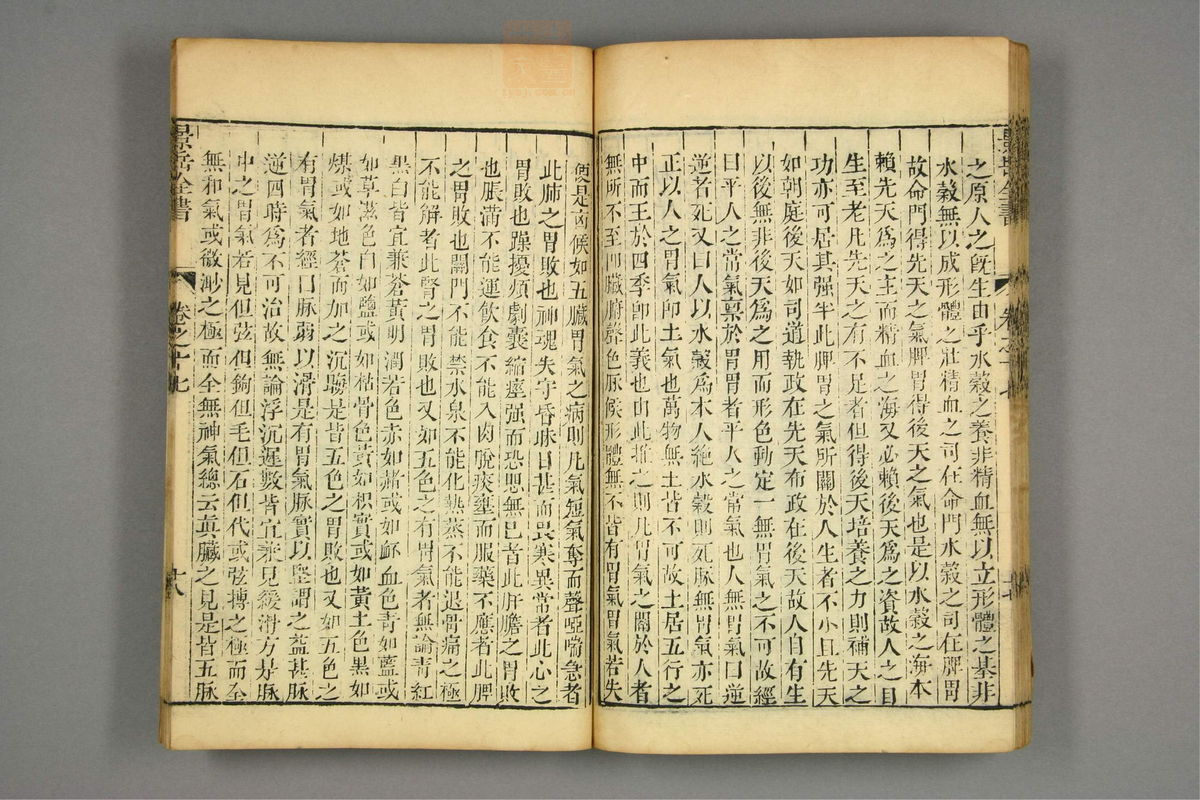 之原人之旣生由乎水穀之養非精血無以立形體之基非
水穀無以成形體之壯精血之司在命門水穀之司在脾胃
故命門得先天之氣脾胃得後天之氣也是以水穀之海本
賴先天爲之主而精血之海又必賴後天爲之資故人之自
生至老凡先天之有不足者但得後天培養之力則補天之
功亦可居其强半此脾胃之氣所關於人生者不小且先天
如朝庭後天如司道執政在先天布政在後天故人自有生
以後無非後天爲之用而形色動定一無胃氣之不可故經
曰平人之常氣稟於胃胃者平人之常氣也人無胃氣曰逆
逆者死又曰人以水穀爲本人絶水穀則死脉無胃氣亦死
正以人之胃氣卽土氣也萬物無土皆不可故土居五行之
中而王於四季卽此義也由此推之則凡胃氣之關於人者
無所不至卽臟腑聲色脉候形體無不皆有胃氣胃氣若失
便是凶候如五臟胃氣之病則凡氣短氣奪而聲啞喘急者
此肺之胃敗也神魂失守昏昧日甚而畏寒異常者此心之
胃敗也躁擾煩劇囊縮痙强而恐懼無巳者此肝膽之胃敗
也脹滿不能運飲食不能入肉脫痰壅而服藥不應者此脾
之胃敗也關門不能禁水泉不能化熱蒸不能退骨痛之極
不能解者此腎之胃敗也又如五色之有胃氣者無論青紅
黑白皆宜兼蒼黃明潤若色赤如赭或如衃血色青如藍或
如草滋色白如鹽或如枯骨色黃如枳實或如黃土色黑如
煤或如地蒼而加之沉晦是皆五色之胃敗也又如五色之
有胃氣者經曰脉弱以滑是有胃氣脉實以堅謂之益甚脉
逆四時爲不可治故無論浮沉遲數皆宜兼見緩滑方是脉
中之胃氣若見但弦但鉤但毛但石但代或弦搏之極而全
無和氣或微渺之極而全無神氣總云眞臟之見是皆五脉
景岳全書
卷之十七
十八
景岳全書
卷之十七
十七